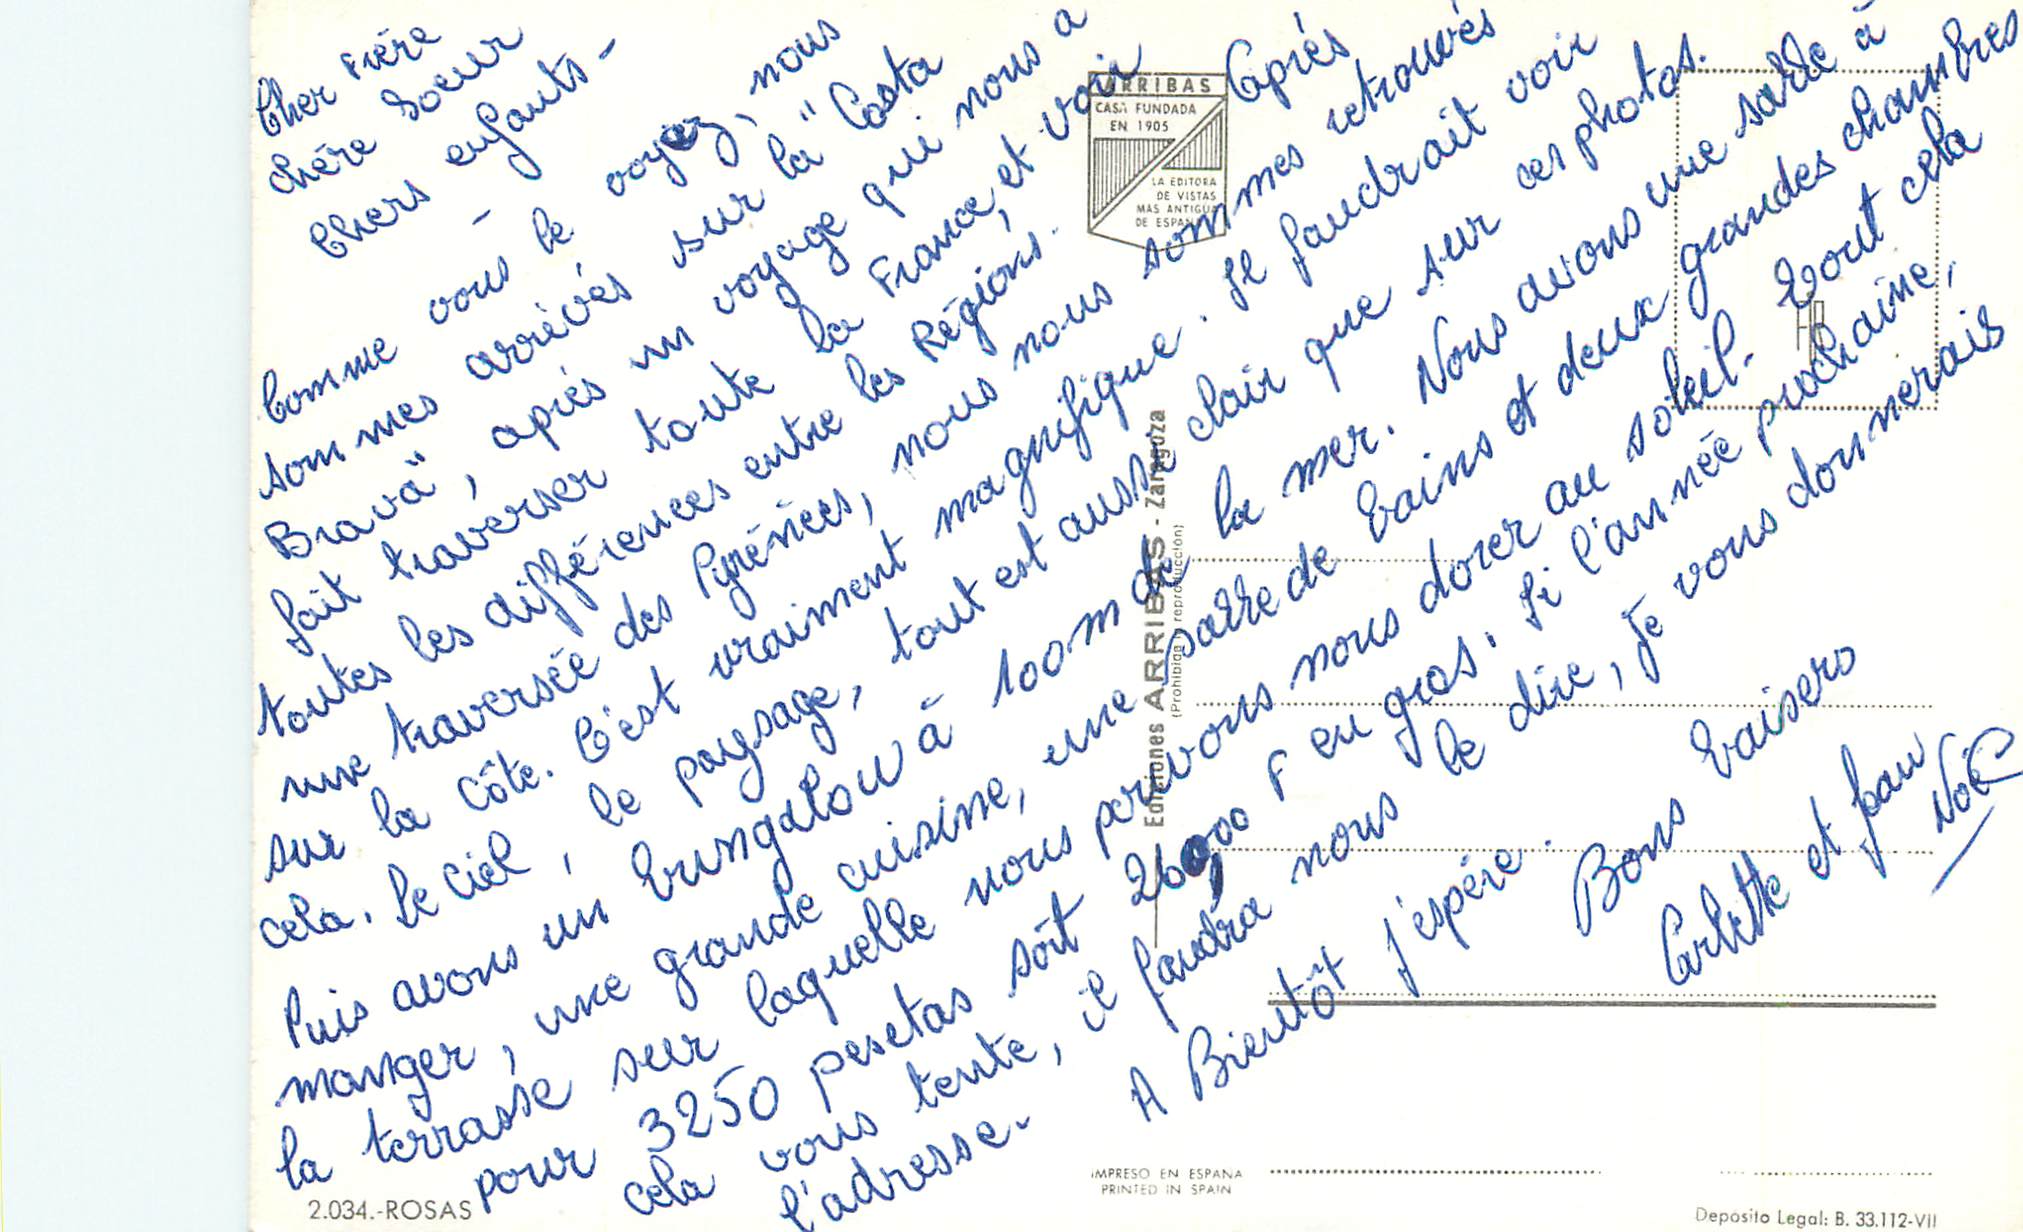 Cher Frère
chère Soeur
Chers enfants -
Comme vous le voyez, nous
sommes arrivés sur la "Costa
Brava", après un voyage qui nous a
fait traverser toute la France, et voir
toutes les différences entre les Régions. Après
une traversée des Pyrénées, nous nous sommes retrouvés
sur la Côte. C'est vraiment magnifique. Il faudrait voir
cela. Le Ciel, le paysage, tout est aussi clair que sur ces photos.
Puis avons un bungalow à 100m de la mer. Nous avons une salle à
manger, une grande cuisine, une salle de bains et deux grandes chambres
la terrasse sur laquelle nous pouvons nous dorer au soleil. Tout cela
pour 3250 pesetas soit 26,000 F en gros. Si l'année prochaine,
cela vous tente, il faudra nous le dire, je vous donnerais
l'adresse. A Bientôt j'espère. Bons baisers
Carlette et Jean
Noël
ARRIBAS
CASA FUNDADA
EN 1905
LA EDITORA
DE VISTAS
MAS ANTIGUA
DE ESPAÑA
Ediciones ARRIBAS - Zaragoza
(Prohibida la reproducción)
2.034.-ROSAS
IMPRESO EN ESPAÑA
PRINTED IN SPAIN
Depósito Legal: B. 33.112-VII